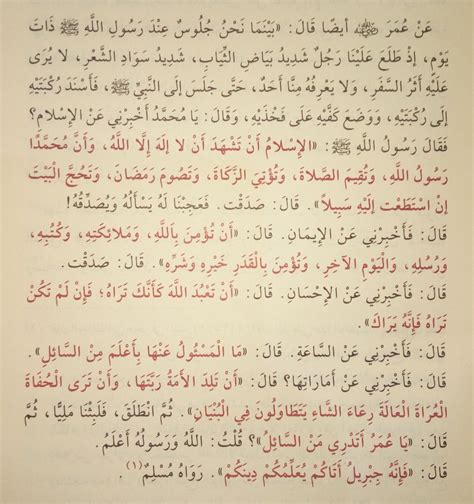 عَنْ عُمَرَ ﵁ أيضًا قَالَ: «بَيْنَمَا نَحْنُ جُلُوسٌ عِنْدَ رَسُولِ اللَّهِ ﷺ ذَاتَ
يَوْمٍ، إذْ طَلَعَ عَلَيْنَا رَجُلٌ شَدِيدُ بَيَاضِ الثِّيَابِ، شَدِيدُ سَوَادِ الشَّعْرِ، لَا يُرَى
عَلَيْهِ أَثَرُ السَّفَرِ، وَلَا يَعْرِفُهُ مِنَّا أَحَدٌ، حَتَّى جَلَسَ إلَى النَّبِيِّ ﷺ، فَأَسْنَدَ رُكْبَتَيْهِ
إلَى رُكْبَتَيْهِ، وَوَضَعَ كَفَّيْهِ عَلَى فَخْذَيْهِ، وَقَالَ: يَا مُحَمَّدُ أَخْبِرْنِي عَنْ الإِسْلَامِ؟
فَقَالَ رَسُولُ اللَّهِ ﷺ: «الإِسْلَامُ أَنْ تَشْهَدَ أَنْ لَا إلَهَ إلَّا اللَّهُ، وَأَنَّ مُحَمَّدًا
رَسُولُ اللَّهِ، وَتُقِيمَ الصَّلَاةَ، وَتُؤْتِيَ الزَّكَاةَ، وَتَصُومَ رَمَضَانَ، وَتَحُجَّ الْبَيْتَ
إنْ اسْتَطَعْت إلَيْهِ سَبِيلًا». قَالَ: صَدَقْت. فَعَجِبْنَا لَهُ يَسْأَلُهُ وَيُصَدِّقُهُ!
قَالَ: فَأَخْبِرْنِي عَنْ الإِيمَانِ. قَالَ: «أَنْ تُؤْمِنَ بِاَللَّهِ، وَمَلَائِكَتِهِ، وَكُتُبِهِ،
وَرُسُلِهِ، وَالْيَوْمِ الآخِرِ، وَتُؤْمِنَ بِالْقَدَرِ خَيْرِهِ وَشَرِّهِ». قَالَ: صَدَقْت.
قَالَ: فَأَخْبِرْنِي عَنْ الإِحْسَانِ. قَالَ: «أَنْ تَعْبُدَ اللَّهَ كَأَنَّكَ تَرَاهُ؛ فَإِنْ لَمْ تَكُنْ
تَرَاهُ فَإِنَّهُ يَرَاكَ».
قَالَ: فَأَخْبِرْنِي عَنْ السَّاعَةِ. قَالَ: «مَا الْمَسْئُولُ عَنْهَا بِأَعْلَمَ مِنْ السَّائِلِ».
قَالَ: فَأَخْبِرْنِي عَنْ أَمَارَاتِهَا؟ قَالَ: «أَنْ تَلِدَ الأَمَةُ رَبَّتَهَا، وَأَنْ تَرَى الْحُفَاةَ
الْعُرَاةَ الْعَالَةَ رِعَاءَ الشَّاءِ يَتَطَاوَلُونَ فِي الْبُنْيَانِ». ثُمَّ انْطَلَقَ، فَلَبِثْنَا مَلِيًّا، ثُمَّ
قَالَ: «يَا عُمَرُ أَتَدْرِي مَنْ السَّائِلُ؟ قُلْتُ: اللَّهُ وَرَسُولُهُ أَعْلَمُ.
قَالَ: «فَإِنَّهُ جِبْرِيلُ أَتَاكُمْ يُعَلِّمُكُمْ دِينَكُمْ». رَوَاهُ مُسْلِمٌ(١).